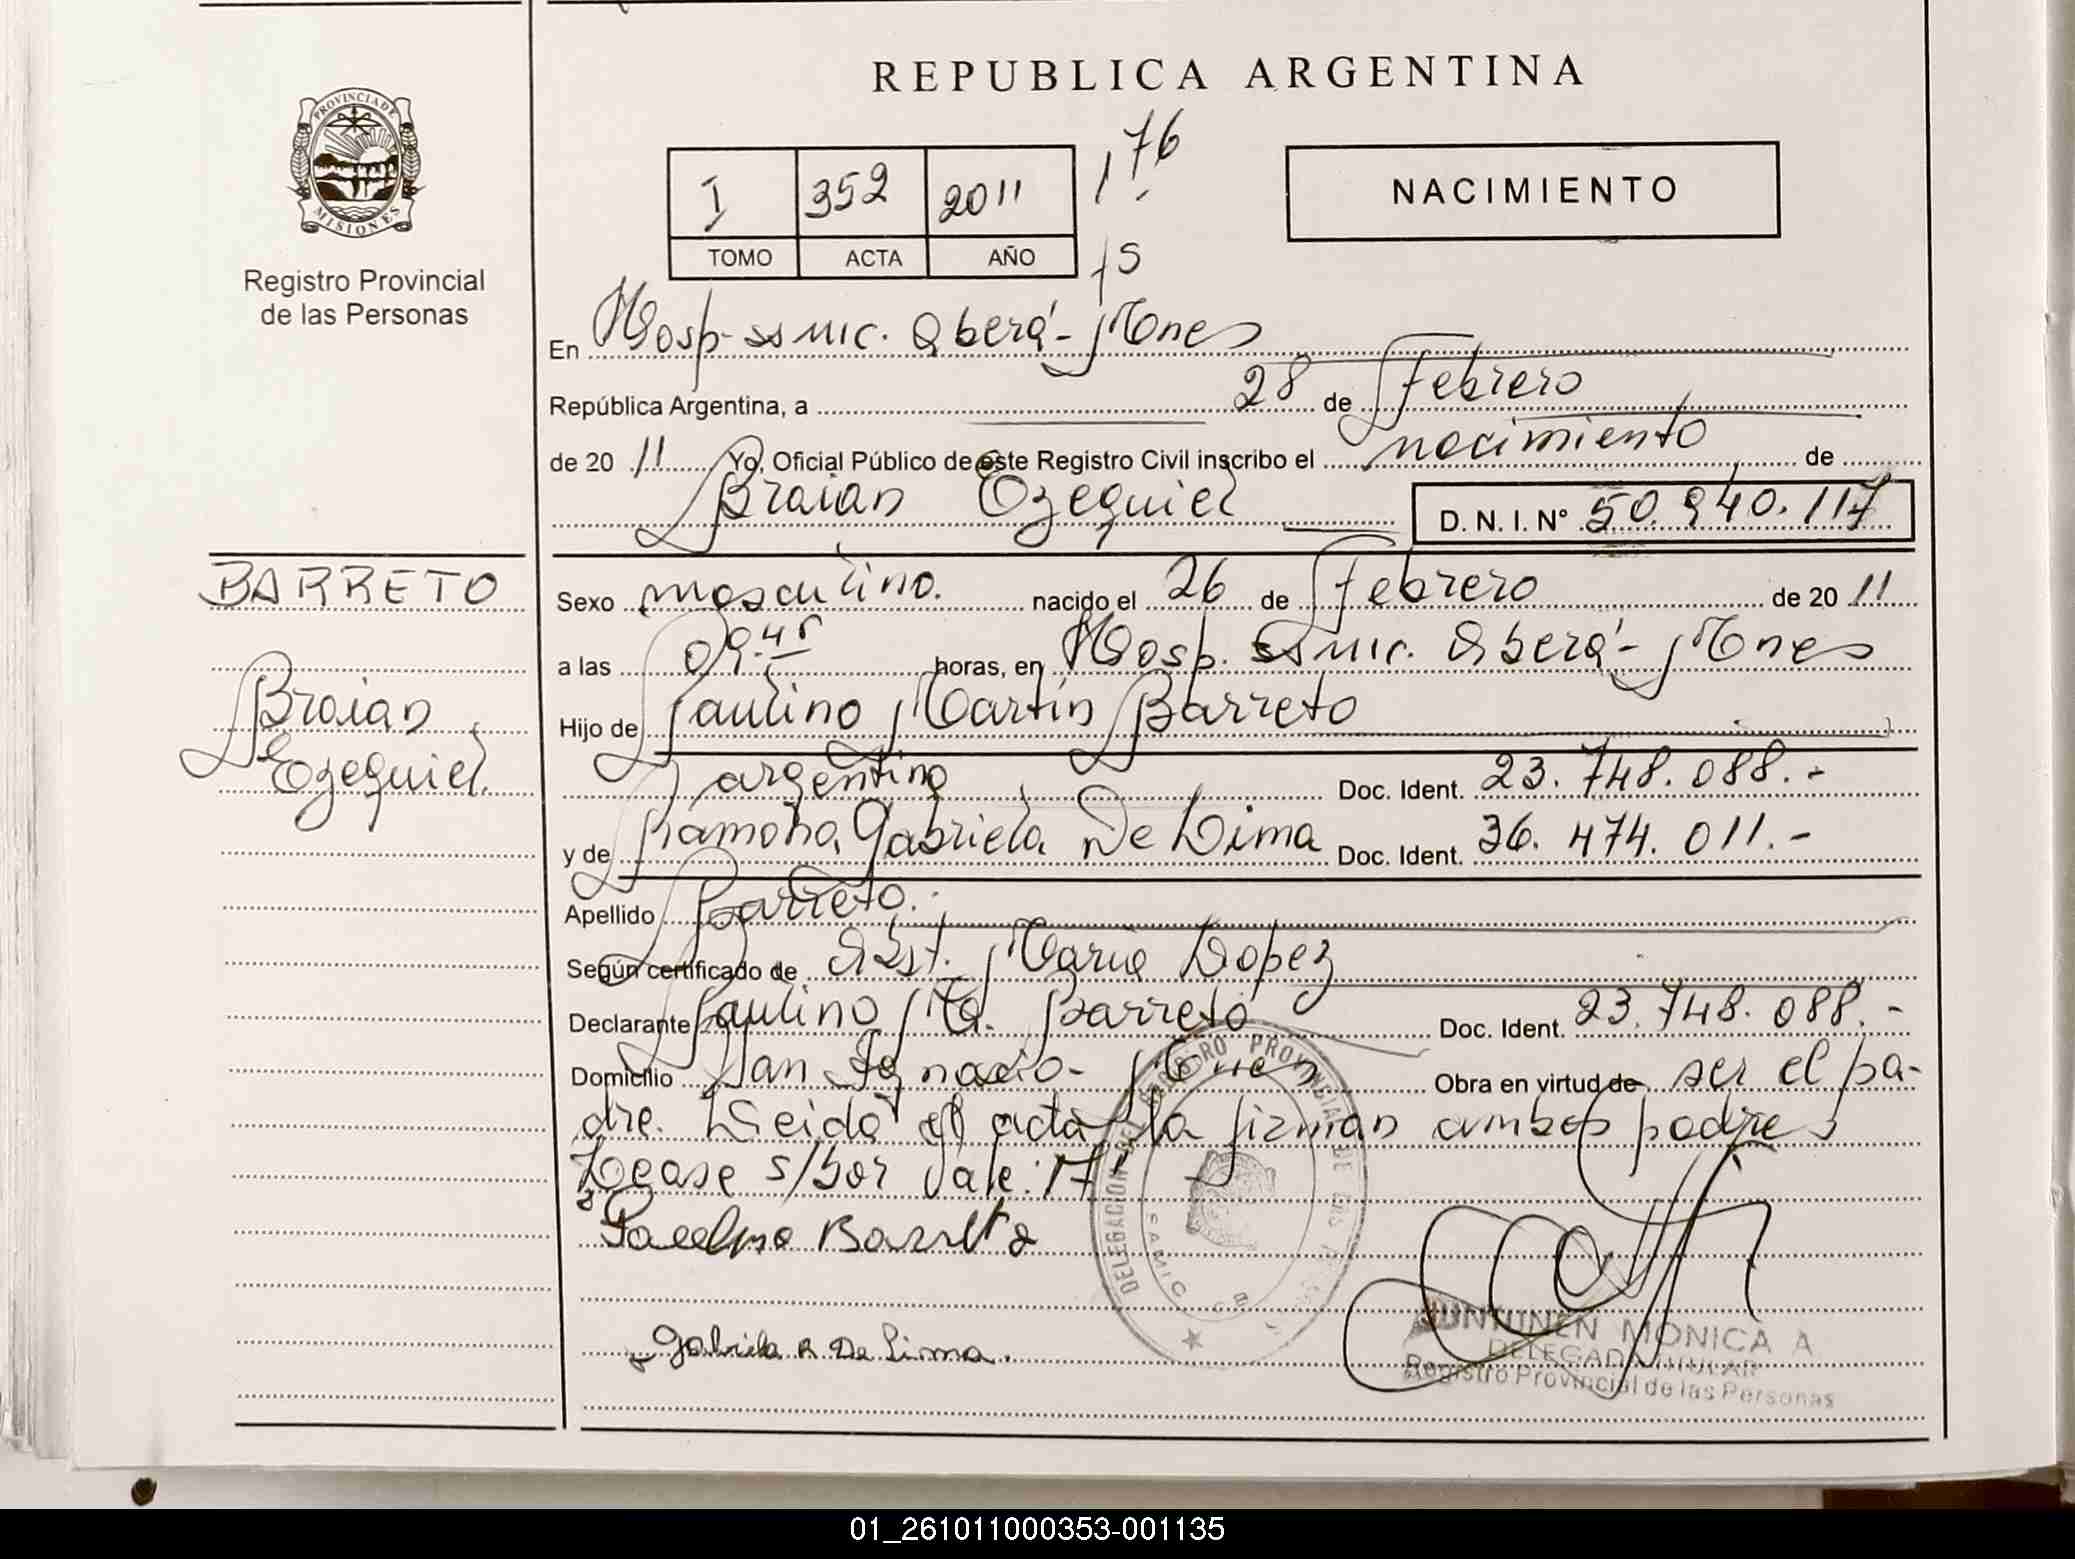 REPUBLICA ARGENTINA
PROVINCIA DE
MISIONES
Registro Provincial
de las Personas
I 352 2011 176
TOMO ACTA AÑO
NACIMIENTO
En Hosp. ss mic. Oberá - Mones
República Argentina, a 28 de Febrero
de 20 11 Yo, Oficial Público de este Registro Civil inscribo el nacimiento de
Braian Ezequiel D. N. I. Nº 50.940.117
BARRETO
Braian
Ezequiel.
Sexo masculino. nacido el 26 de Febrero de 20 11
a las 09.45 horas, en Hosp. ss mic. Oberá - Mones
Hijo de Paulino Martín Barreto
argentino Doc. Ident. 23.748.088.-
y de Ramona Gabriela De Lima Doc. Ident. 36.474.011.-
Apellido Barreto.
Según certificado de Obst. Maria Lopez
Declarante Paulino M. Barreto Doc. Ident. 23.748.088.-
Domicilio San Ignacio - Mones Obra en virtud de ser el pa-
dre. Leida el acta la firman ambos padres
s/bor Vale: 17
Paulino Barreto
Gabriela R De Lima.
DELEGACION DEL REGISTRO PROVINCIAL DE LAS
JUNTUNEN MONICA A
DELEGADA TITULAR
Registro Provincial de las Personas
01_261011000353-001135